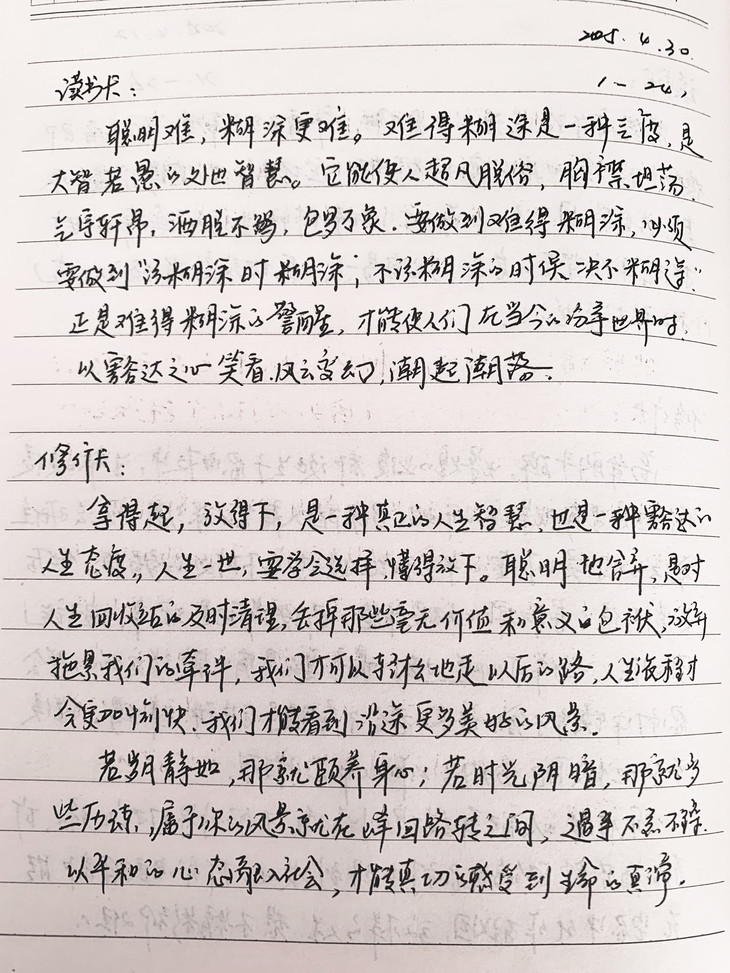 2025.4.30.
1-24,
读书卡：
聪明难，糊涂更难。难得糊涂是一种气度，是
大智若愚的处世智慧。它能使人超凡脱俗，胸襟坦荡，
气宇轩昂，洒脱不羁，包罗万象。要做到难得糊涂，必须
要做到“该糊涂时糊涂；不该糊涂的时候决不糊涂”
正是难得糊涂的警醒，才能使人们在当今的纷争世界时，
以豁达之心笑看风云变幻，潮起潮落。
修行卡：
拿得起，放得下，是一种真正的人生智慧，也是一种豁达的
人生态度，人生一世，要学会选择，懂得放下。聪明地舍弃，是对
人生回收站的及时清理，丢掉那些毫无价值和意义的包袱，放弃
拖累我们的牵绊，我们才可以地走以后的路，人生旅程才
会更加愉快，我们才能看到沿途更多美好的风景。
若岁月静好，那就颐养身心；若时光阴暗，那就多
些历练，属于你的风景就在峰回路转之间，遇事不急不躁，
以平和的心态融入社会，才能真切的感受到生命的真谛。